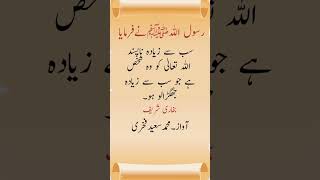 رسول اللہ ﷺ نے فرمایا
سب سے زیادہ ناپسند
اللہ تعالیٰ کو وہ شخص
ہے جو سب سے زیادہ
جھگڑالو ہو۔
بخاری شریف
آواز۔ محمد سعید فخری